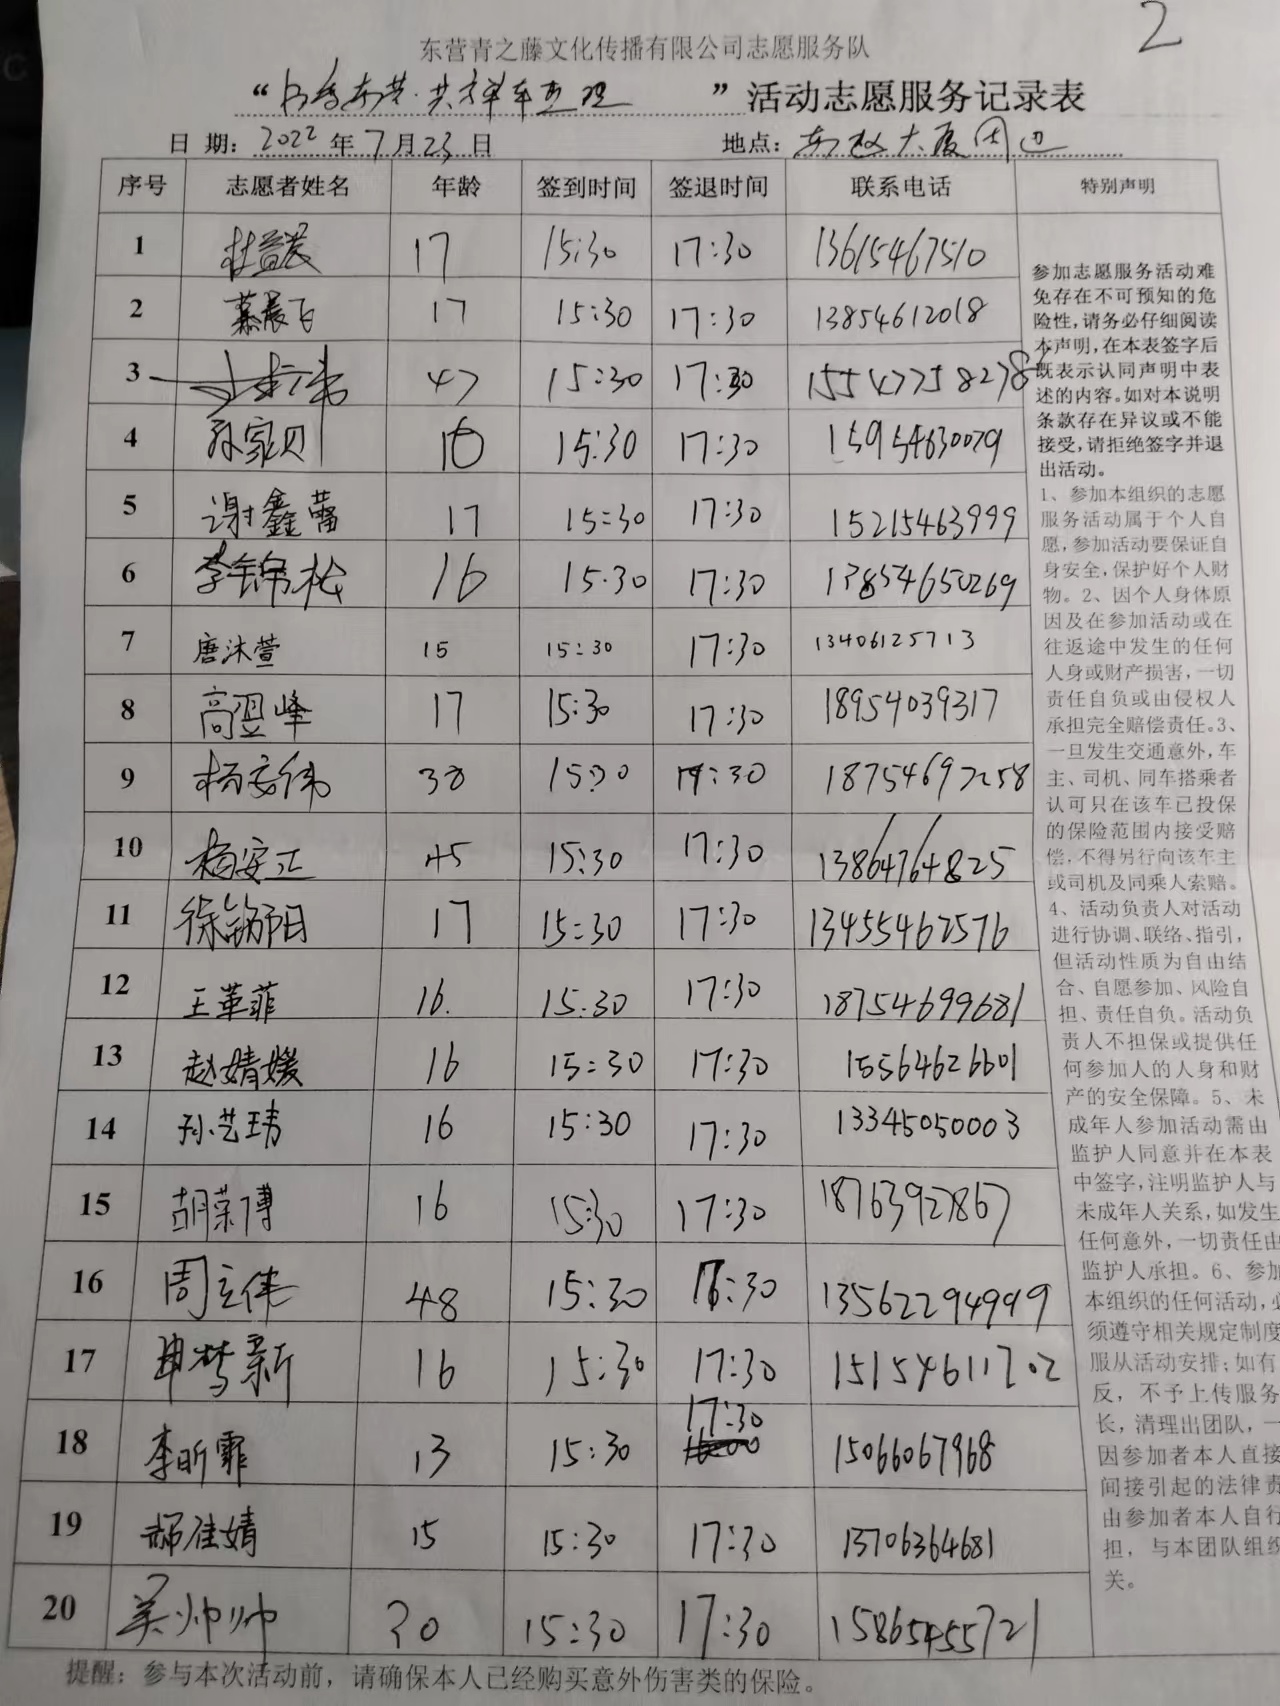 2
东营青之藤文化传播有限公司志愿服务队
“ 东营·共享单车整理 ”活动志愿服务记录表
日 期: 2022 年 7 月 23 日 地点: 东赵大厦周边
序号 志愿者姓名 年龄 签到时间 签退时间 联系电话 特别声明
1 杜益宸 17 15:30 17:30 13615467510
2 綦晨飞 17 15:30 17:30 13854612018
3 47 15:30 17:30
4 孙家贝 16 15:30 17:30 15954630079
5 谢鑫蕾 17 15:30 17:30 15215463999
6 李锦松 16 15:30 17:30 13854650269
7 唐沐萱 15 15:30 17:30 13406125713
8 高翌峰 17 15:30 17:30 18954039317
9 杨安伟 38 15:30 17:30 18754697258
10 杨安江 45 15:30 17:30 13864764825
11 徐铭阳 17 15:30 17:30 13455462576
12 王革菲 16. 15:30 17:30 18754699681
13 赵婧媛 16 15:30 17:30 15564626601
14 孙艺玮 16 15:30 17:30 13345050003
15 胡荣博 16 15:30 17:30 18763927867
16 周立伟 48 15:30 17:30 13562294999
17 申梦新 16 15:30 17:30 15154611702
18 李昕霏 13 15:30 17:30 15066067968
19 郝佳婧 15 15:30 17:30 13706364681
20 吴帅帅 30 15:30 17:30 15865455721
参加志愿服务活动难
免存在不可预知的危
险性,请务必仔细阅读
本声明,在本表签字后
既表示认同声明中表
述的内容。如对本说明
条款存在异议或不能
接受,请拒绝签字并退
出活动。
1、参加本组织的志愿
服务活动属于个人自
愿,参加活动要保证自
身安全,保护好个人财
物。2、因个人身体原
因及在参加活动或在
往返途中发生的任何
人身或财产损害,一切
责任自负或由侵权人
承担完全赔偿责任。3、
一旦发生交通意外,车
主、司机、同车搭乘者
认可只在该车已投保
的保险范围内接受赔
偿,不得另行向该车主
或司机及同乘人索赔。
4、活动负责人对活动
进行协调、联络、指引,
但活动性质为自由结
合、自愿参加、风险自
担、责任自负。活动负
责人不担保或提供任
何参加人的人身和财
产的安全保障。5、未
成年人参加活动需由
监护人同意并在本表
中签字,注明监护人与
未成年人关系,如发生
任何意外,一切责任由
监护人承担。6、参加
本组织的任何活动,必
须遵守相关规定制度
服从活动安排;如有
反，不予上传服务
长，清理出团队，一
因参加者本人直接
间接引起的法律责
由参加者本人自行
担，与本团队组织
关。
提醒：参与本次活动前，请确保本人已经购买意外伤害类的保险。